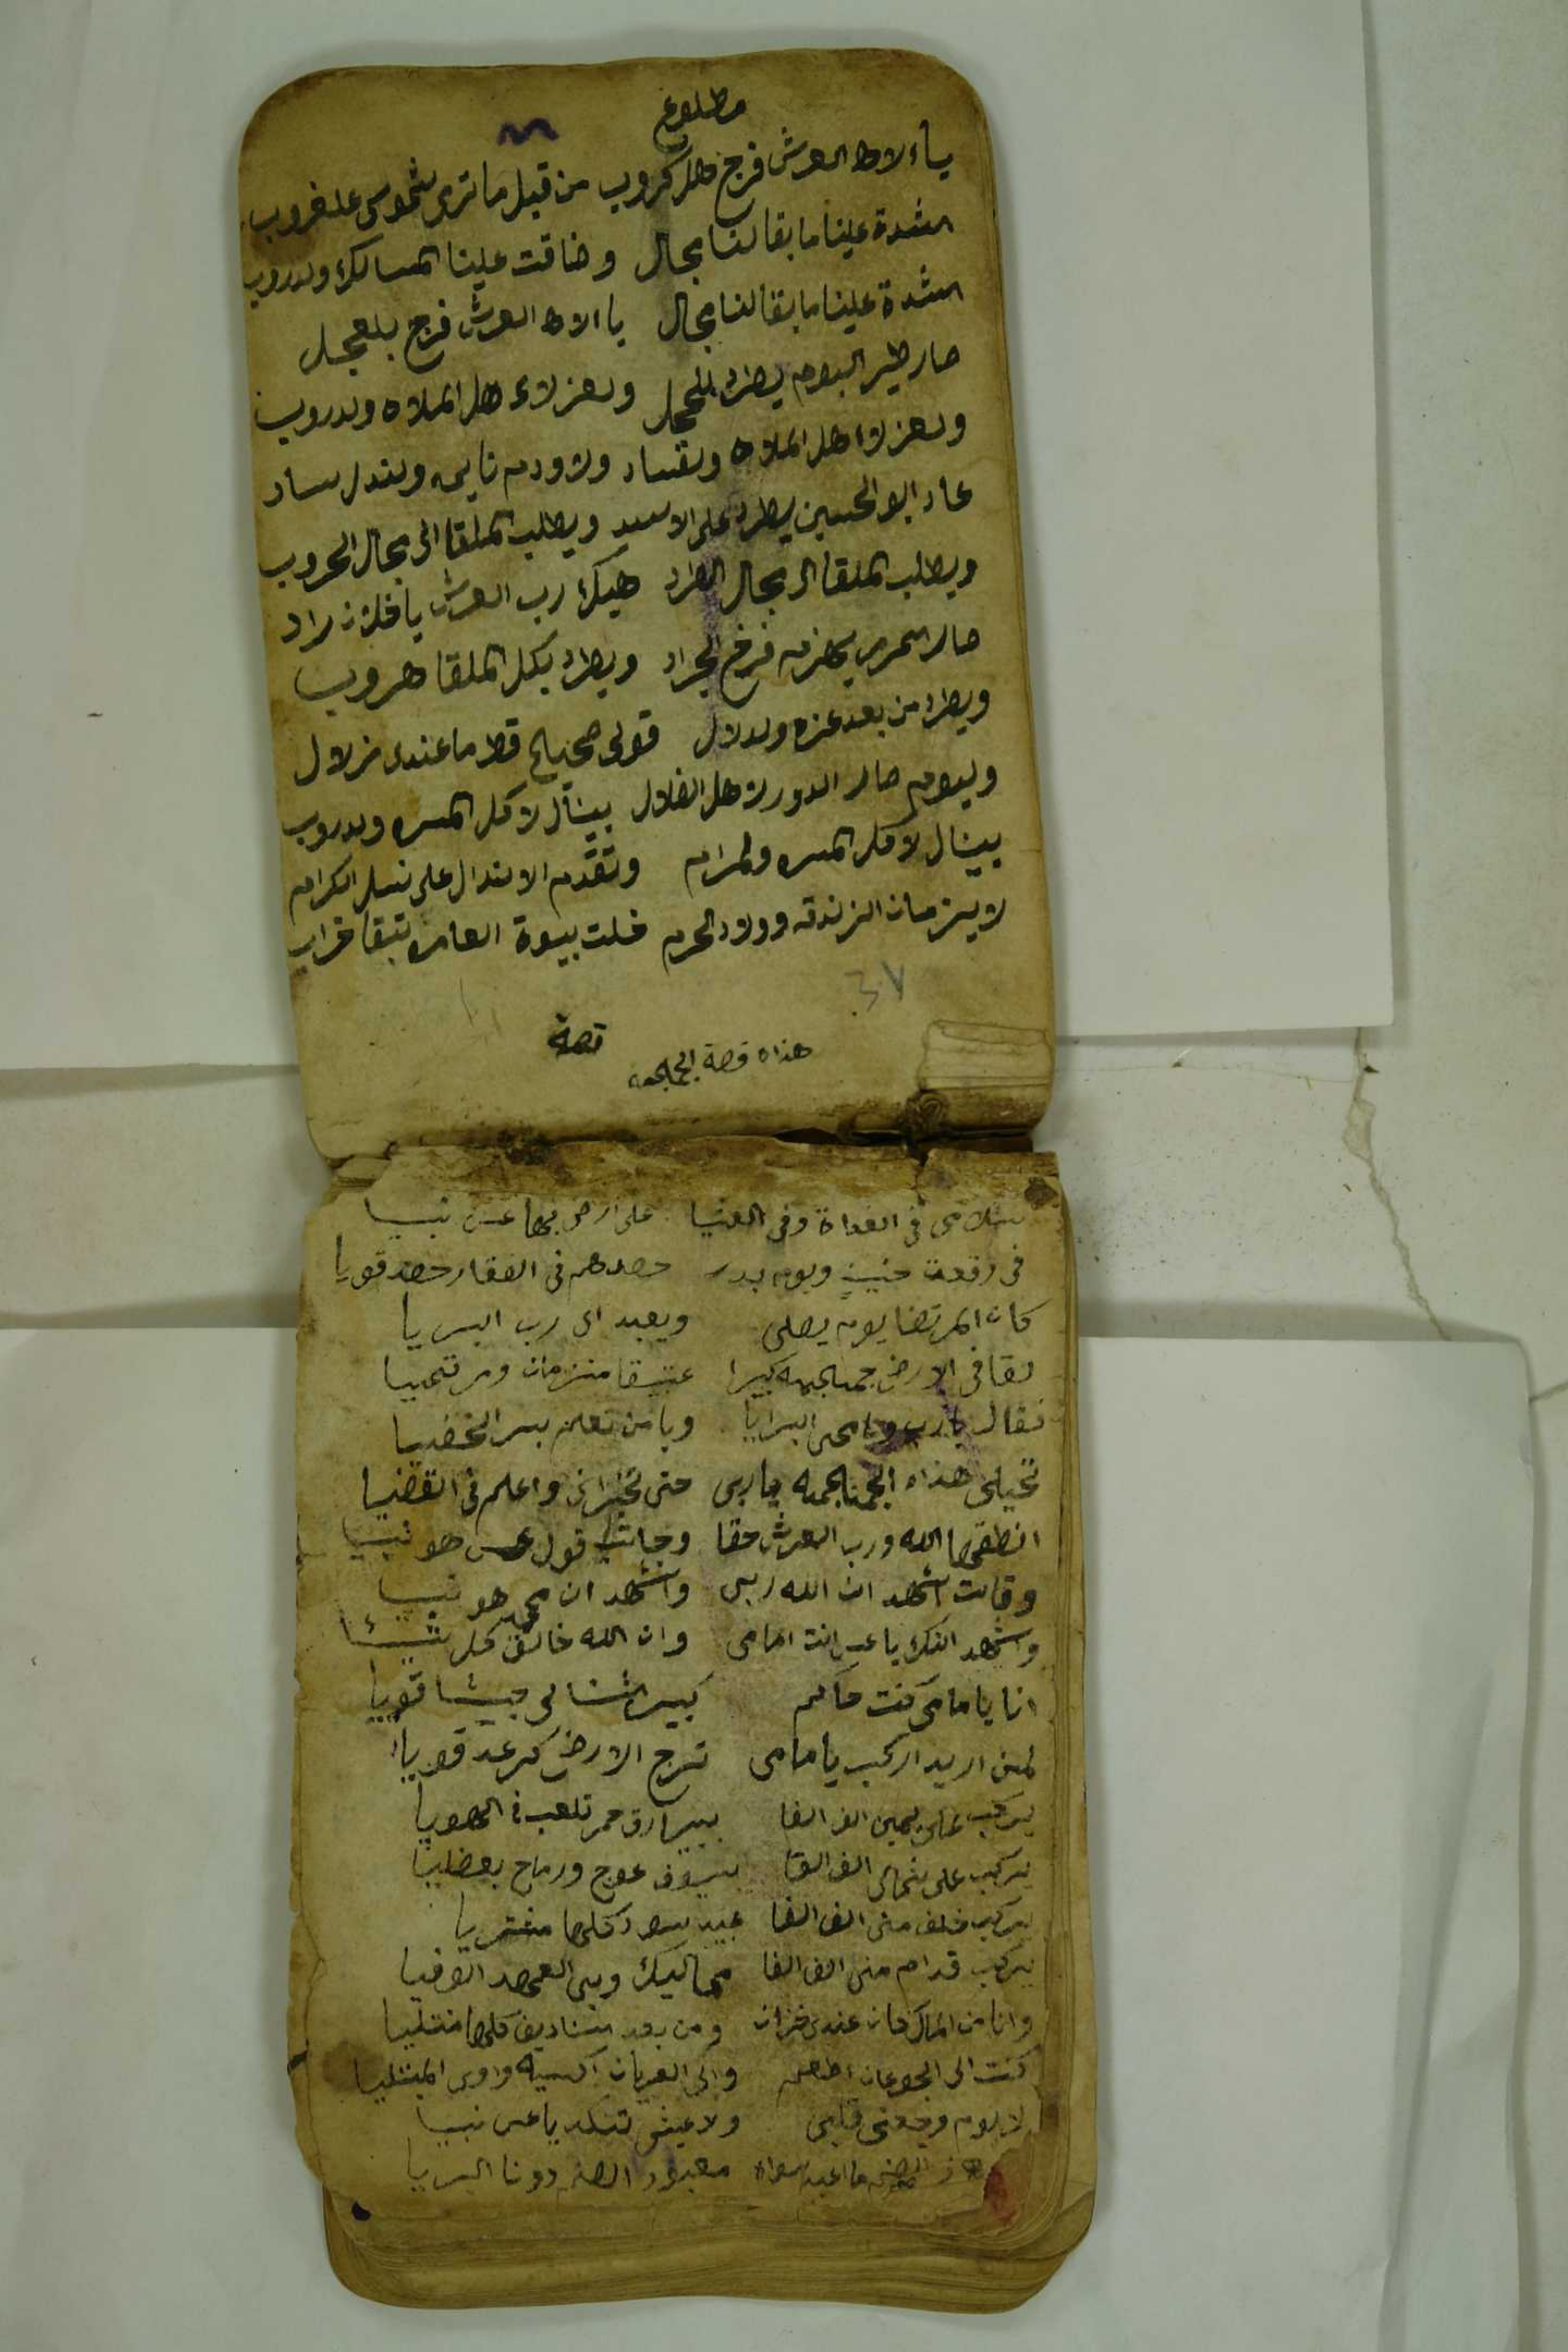 مطلوع
يا الاه العرش فرج هل كروب من قبل ما ترى شموس عل غروب
الشدة علينا ما بقا لنا مجال وضاقت علينا المسالك ولدروب
الشدة علينا ما بقا لنا مجال يا الاه العرش فرج بلعجل
صار طير البوم يطرد للحجل ولعز لاء هل الملاه ولدروب
ولعز لاء هل الملاه ولفساد ولاودم نايمه ولندل ساد
عاد ابو الحسين يطرد على الاسد ويطلب الملقا الى مجال الحروب
ويطلب الملقا الى مجال الطراد هيك رب العرش يا فلان راد
صار الحر يهزمه فرخ الجراد ويطرد بكل الملقا هروب
ويطرد من بعد عزه ولدلال قولي صحيح قط ما عندي زلال
وليوم صار الدور لاهل الضلال بينال لاكل المسره ولدروب
بينال لاكل المسره ولمرام وتقدم الاندال على نسل الكرام
لا بيزمان الزندقه وولاد الحرم خلت بيوة العامره تبقا خراب
٣٠٧
قصة
هذاه قصة الجمجمه
سلامي في الغداة وفي العشيا على ارض بها عـ نبيا
في وقعت حنين ويوم بدر حصدهم في الفقار حصد قويا
كان المرتضا يوم يصلي ويعبد الى رب البريا
لقا في الارض جمجمه كبيرا عتيقا منزمان ومرتميا
فقال يارب ويا محي البرايا ويا من تعلم بسر الخفيا
تحيلي هذاه الجمجمه يا ربي حتى تخبراني واعلم في القضيا
انطقها الله ورب العرش حقا وجابت قول عـ هو نبيا
وقالت اشهد ان الله ربي واشهد ان محمد هو نبيا
واشهد انك يا علي انت امامي وان الله خالق كل شيئا
انا يا مامي كنت حاكم كبير الشنا لي جيشا قويا
لمن اريد اركب يا مامي ترج الارض كرعد قويا
يركب على يميني الف الفا ببيارق حمر تلعب في الهويا
يركب على شمالي الف الفا بسيوف عوج ورماح
يركب خلف مني الف الفا عبيد سود كلها مشتريا
يركب قدام مني الف الفا مماليك وبي العهد الوفيا
وانا من المال كان عندي خزان ومن بعد الصناديق كلها منتليا
كنت الى الجوعان اطعم والى العريان اكسيه واوي المبتليا
لا يوم وجعني قلبي ولا عيشي تنكد يا علي نبيا
الصنم ما اعبد سواه معبود الصنم دونا البريا